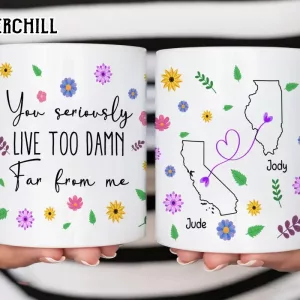 ERCHILL
You seriously
LIVE TOO DAMN
Far from me
Jody
Jude